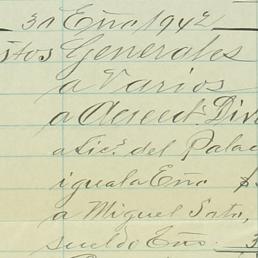 31 Eño 1942
stos Generales
a Varios
a Acreed. Div
a Lic. del Palac
iguala Eño $
a Miguel Soto,
sueldo Eño. 3